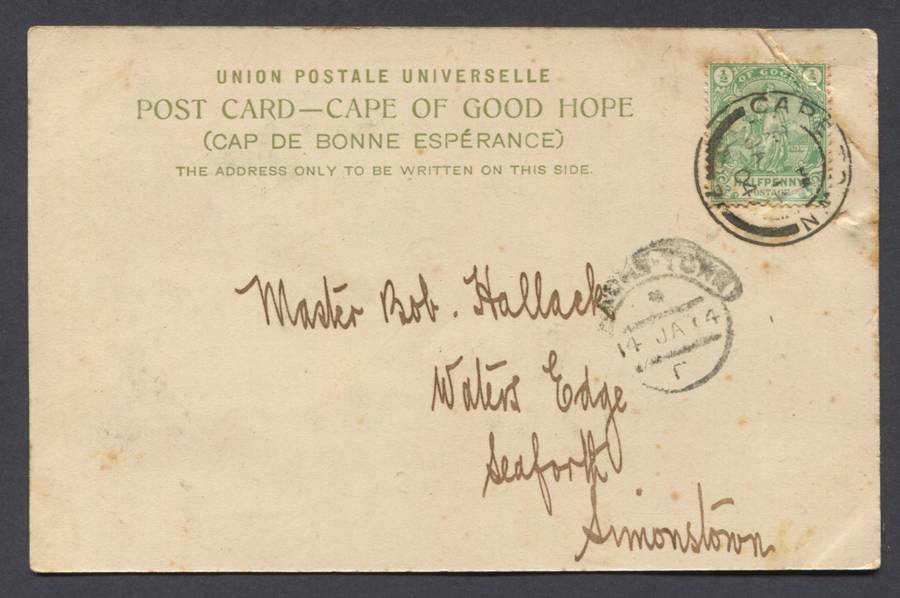 UNION POSTALE UNIVERSELLE
POST CARD—CAPE OF GOOD HOPE
(CAP DE BONNE ESPÉRANCE)
THE ADDRESS ONLY TO BE WRITTEN ON THIS SIDE.
OF GOOD
HALFPENNY
POSTAGE
CAPE TOWN
JA
Master Bob. Hallack
Waters Edge
Seaforth
Simonstown
14 JA 14